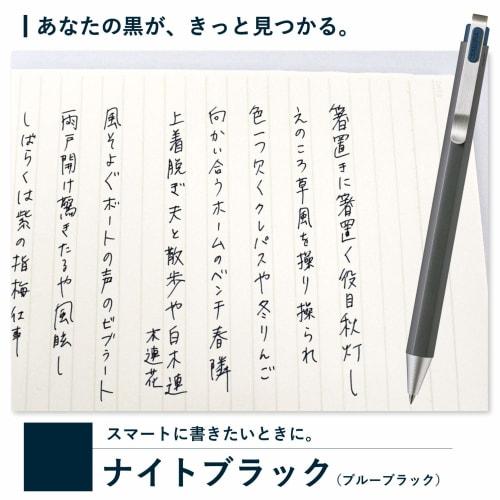 あなたの黒が、きっと見つかる。
箸置きに箸置く役目秋灯し
えのころ草風を操り操られ
色一つ欠くクレパスや冬りんご
向かい合うホームのベンチ春隣
上着脱ぎ夫と散歩や白木蓮
木蓮花
風そよぐボートの声のビブラート
雨戸開け鶯きたるや風眩し
しばらくは紫の指梅仕事
スマートに書きたいときに。
ナイトブラック（ブルーブラック）